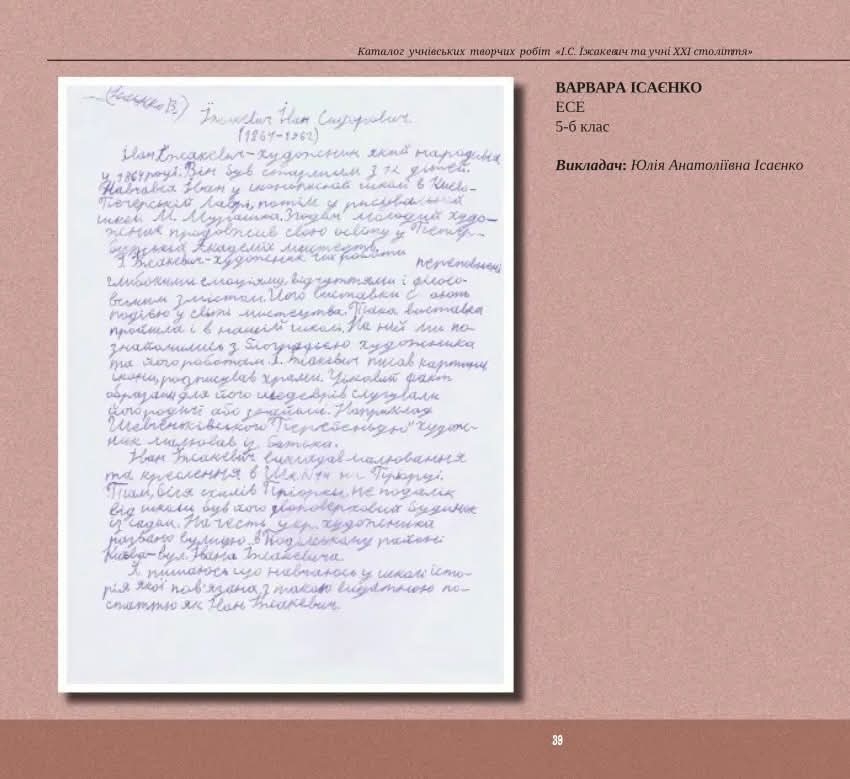 Каталог учнівських творчих робіт «І.С. Їжакевич та учні XXI століття»
ВАРВАРА ІСАЄНКО
ЕСЕ
5-б клас
Викладач: Юлія Анатоліївна Ісаєнко
(Ісаєнко В.)
Їжакевич Іван Сидорович
(1864-1962)
Іван Їжакевич-художник який народився
у 1864році. Він був старшим з 12 дітей.
Навчався Іван у іконописній школі в Києво-
Печерській Лаврі, потім у рисувальній
школі М. Мурашка. Згодом молодий худо-
жник продовжив свою освіту у Петер-
бурзькій Академії мистецтв.
І Їжакевич-художник чиї роботи переповнені
глибокими емоціями, відчуттями і філосо-
вським змістом. Його виставки є
подією у світі мистецтва. Така виставка
пройшла і в нашій школі. На ній ми по-
знайомились з біографією художника
та його роботами. І. Їжакевич писав картини,
ікони, розписував храми. Цікавий факт
образами для його шедеврів слугували
його родичі або знайомі. Наприклад
Шевченківського "Перебендю" худож-
ник малював у батька.
Іван Їжакевич викладав малювання
та креслення в №14 на Пріорці.
Там, біля схилів Пріорки, не подалік
від школи був його двоповерховий будинок
із садом. На честь укр. художника
названо вулицю в Подільському районі
Києва-вул. Івана Їжакевича.
Я пишаюсь що навчаюсь у школі істо-
рія якої пов'язана з такою видатною по-
статтю як Іван Їжакевич.
39